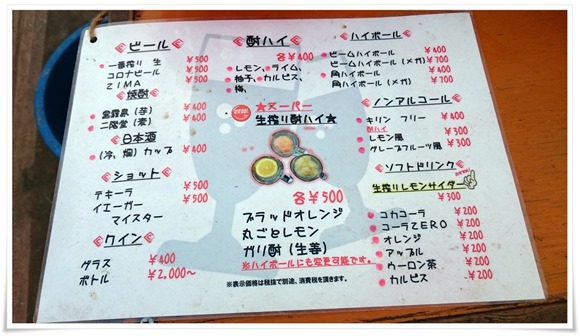 ビール
一番搾り 生 ¥500
コロナビール ¥500
ZIMA ¥500
焼酎
黒霧島(芋) ¥400
二階堂(麦) ¥400
日本酒
(冷、燗) カップ ¥400
ショット
テキーラ ¥500
イエーガーマイスター ¥500
ワイン
グラス ¥400
ボトル ¥2,000～
酎ハイ
各¥400
レモン、ライム、
柚子、カルピス、
梅、
★スーパー
生搾り酎ハイ★
各¥500
ブラッドオレンジ
丸ごとレモン
ガリ酎(生姜)
※ハイボールにも変更可能です。
※表示価格は税抜で別途、消費税を頂きます。
ハイボール
ビームハイボール ¥400
ビームハイボール(メガ) ¥700
角ハイボール ¥400
角ハイボール(メガ) ¥700
ノンアルコール
キリン フリー ¥400
酎ハイ
レモン風 ¥300
グレープフルーツ風 ¥300
ソフトドリンク
生搾りレモンサイダー
¥300
コカコーラ ¥200
コーラZERO ¥200
オレンジ ¥200
アップル ¥200
ウーロン茶 ¥200
カルピス ¥200